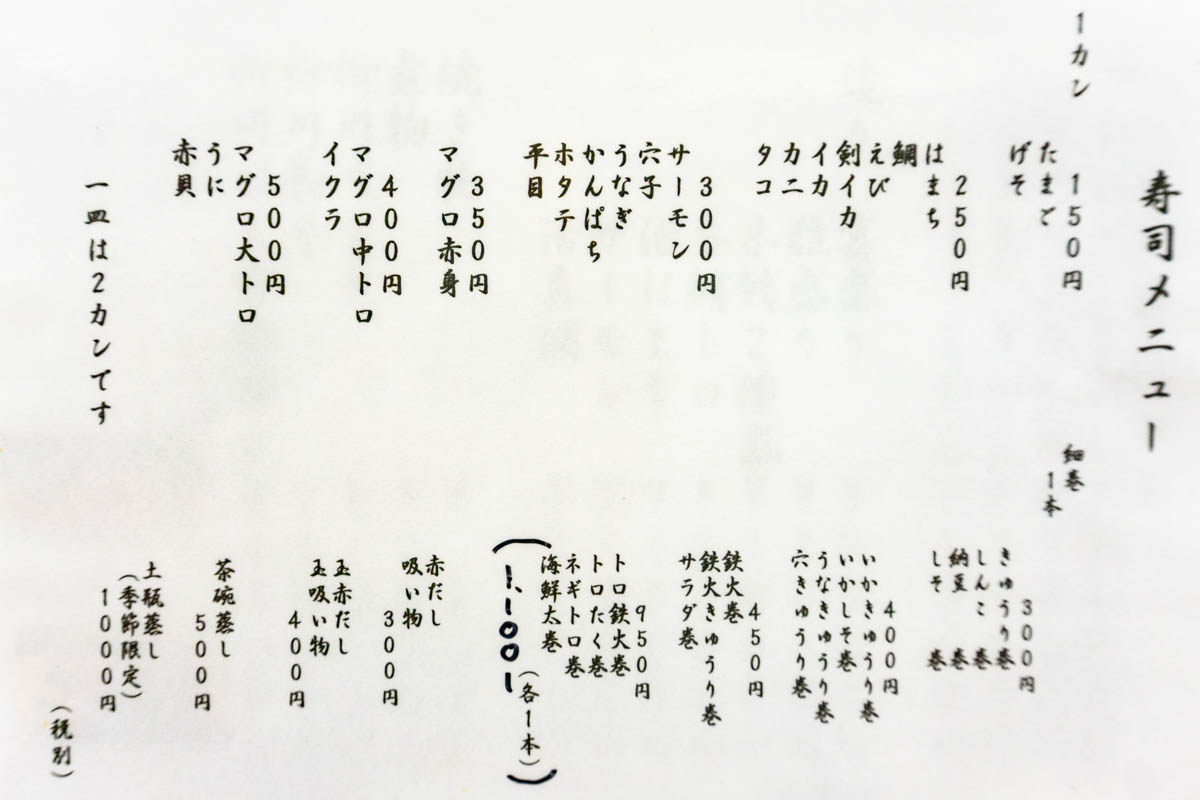 寿司メニュー
1カン
150円
たまご
げそ
250円
はまち
鯛
えび
剣イカ
イカ
カニ
タコ
300円
サーモン
穴子
うなぎ
かんぱち
ホタテ
平目
350円
マグロ赤身
400円
マグロ中トロ
イクラ
500円
マグロ大トロ
うに
赤貝
一皿は2カンです
細巻
1本
300円
きゅうり巻
しんこ巻
納豆巻
しそ巻
400円
いかきゅうり巻
いかしそ巻
うなきゅうり巻
穴きゅうり巻
450円
鉄火巻
鉄火きゅうり巻
サラダ巻
950円
トロ鉄火巻
トロたく巻
ネギトロ巻
海鮮太巻
(1,100ー(各1本))
赤だし
吸い物
300円
玉赤だし
玉吸い物
400円
茶碗蒸し
500円
土瓶蒸し
(季節限定)
1000円
(税別)